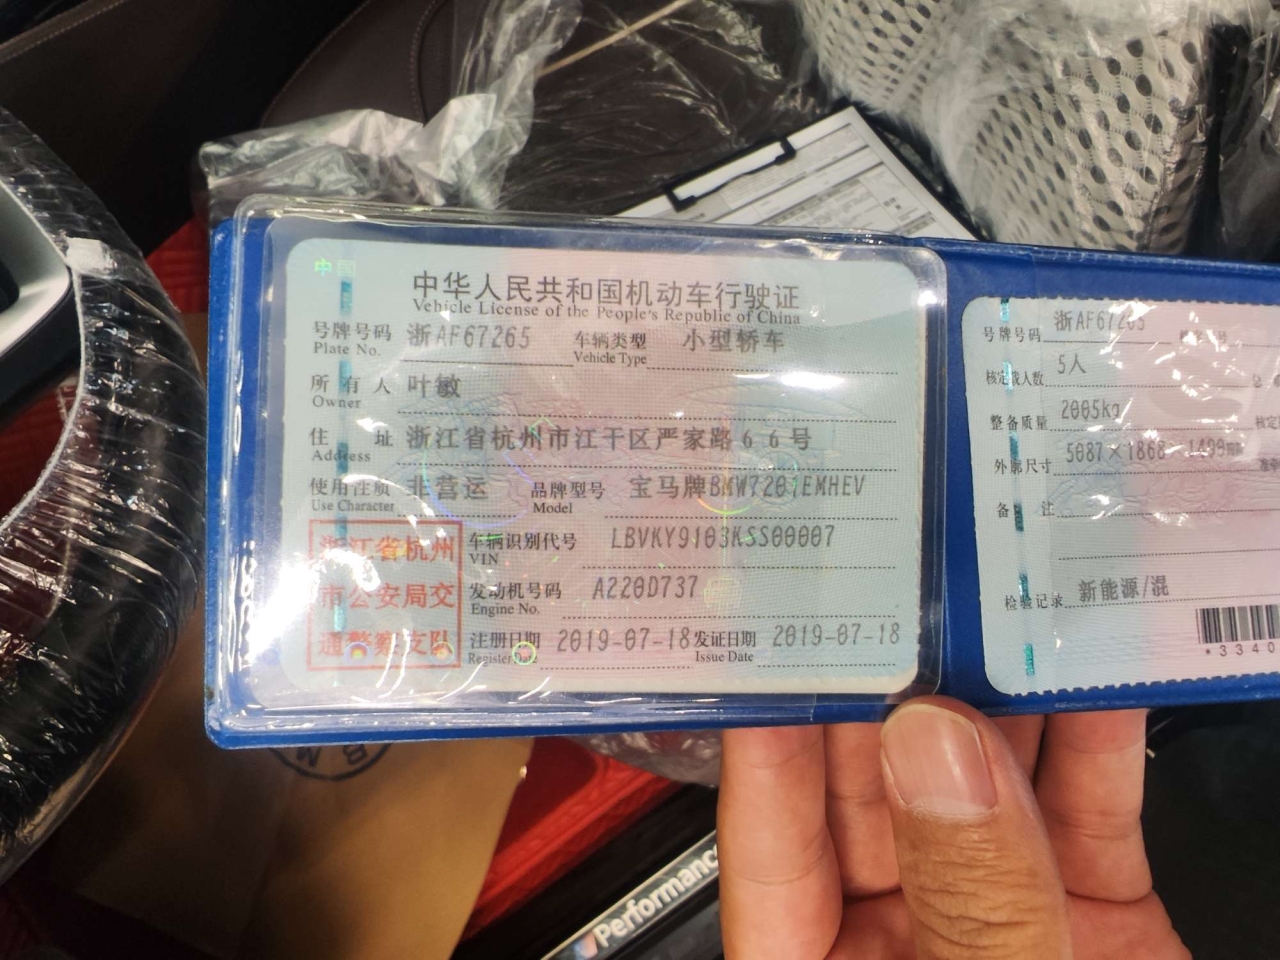 中国
中华人民共和国机动车行驶证
Vehicle License of the People's Republic of China
号牌号码 浙AF67265 车辆类型 小型轿车
Plate No. Vehicle Type
所有人 叶敏
Owner
住址 浙江省杭州市江干区严家路66号
Address
使用性质 非营运 品牌型号 宝马牌BMW7201EMHEV
Use Character Model
浙江省杭州
市公安局交
通警察支队
车辆识别代号 LBVKY9103KSS00007
VIN
发动机号码 A220D737
Engine No.
注册日期 2019-07-18 发证日期 2019-07-18
Register Date Issue Date
号牌号码 浙AF67265
核定载人数 5人
整备质量 2005kg
外廓尺寸 5087×1868
备注
检验记录 新能源/混
*3340
Performanc